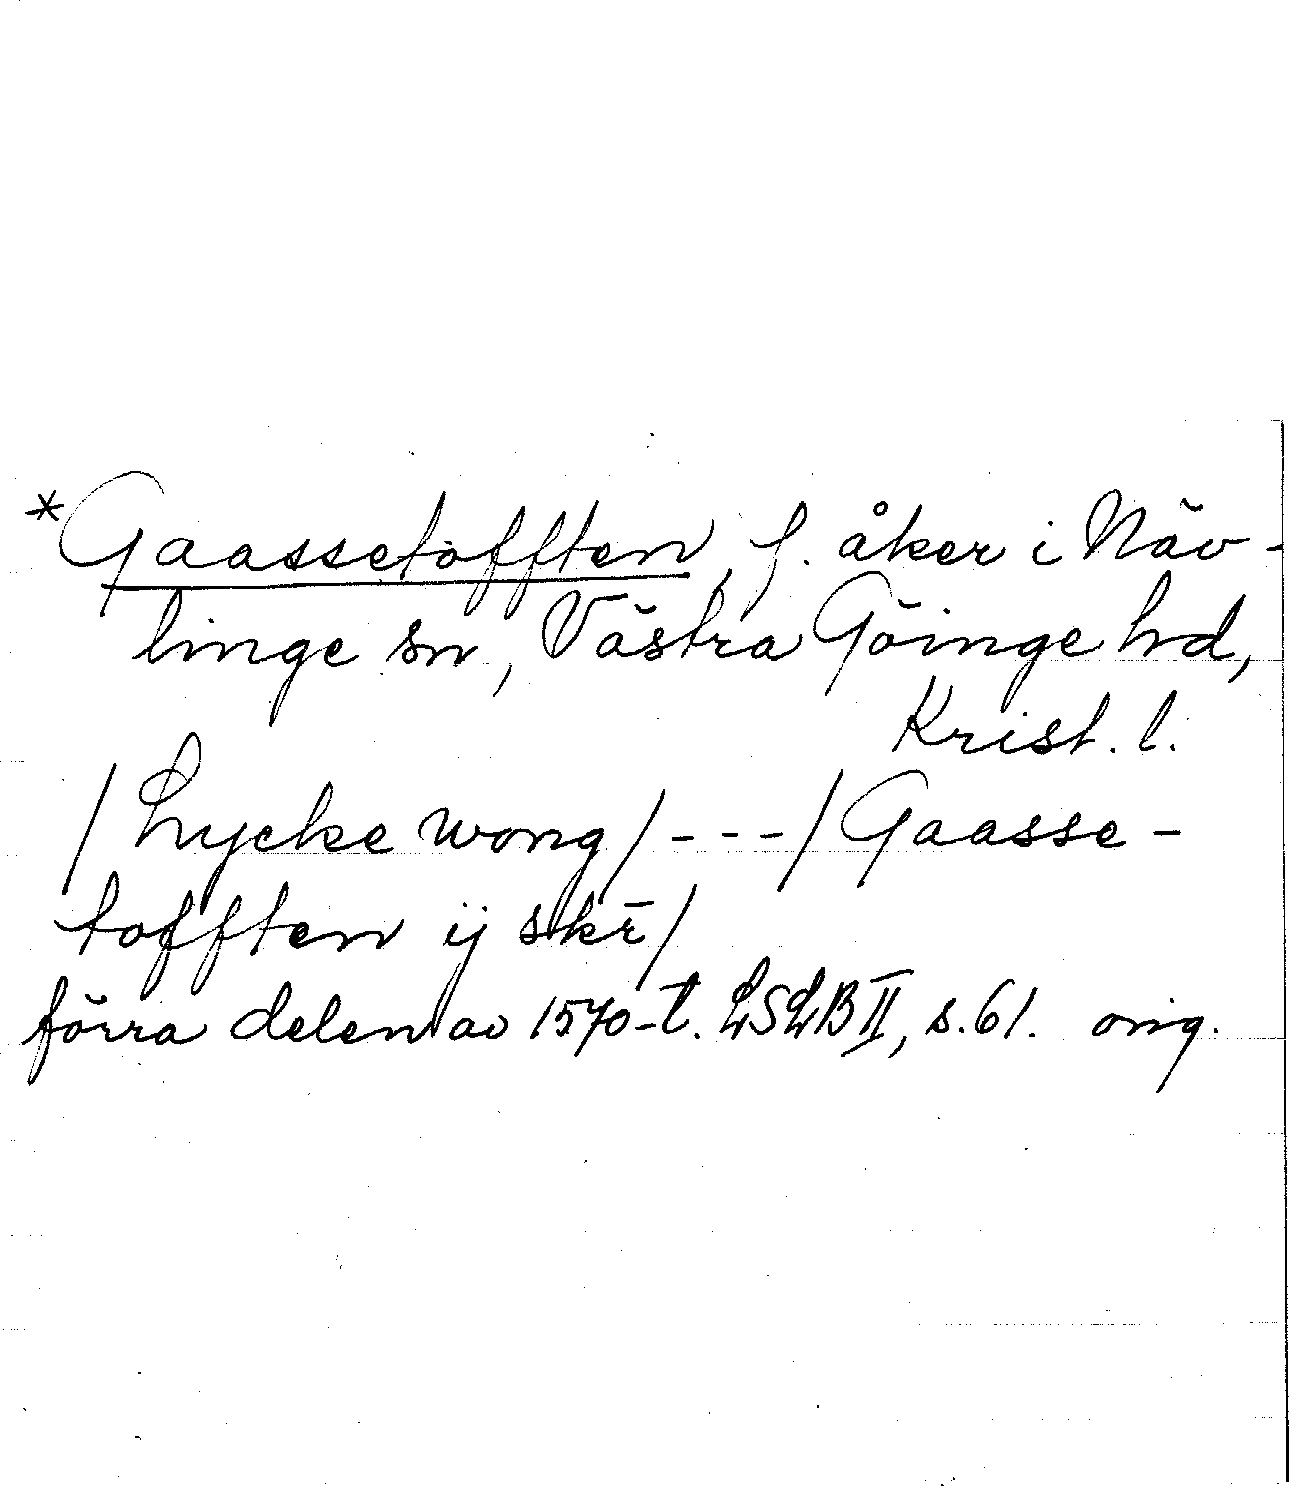 *Gaassetofften, f. åker i Näv-
linge sn, Västra Göinge hd,
Krist. l.
/Lycke wong/---/Gaasse-
tofften ij skr̄/
förra delen av 1570-t. LSLB II, s. 61. orig.